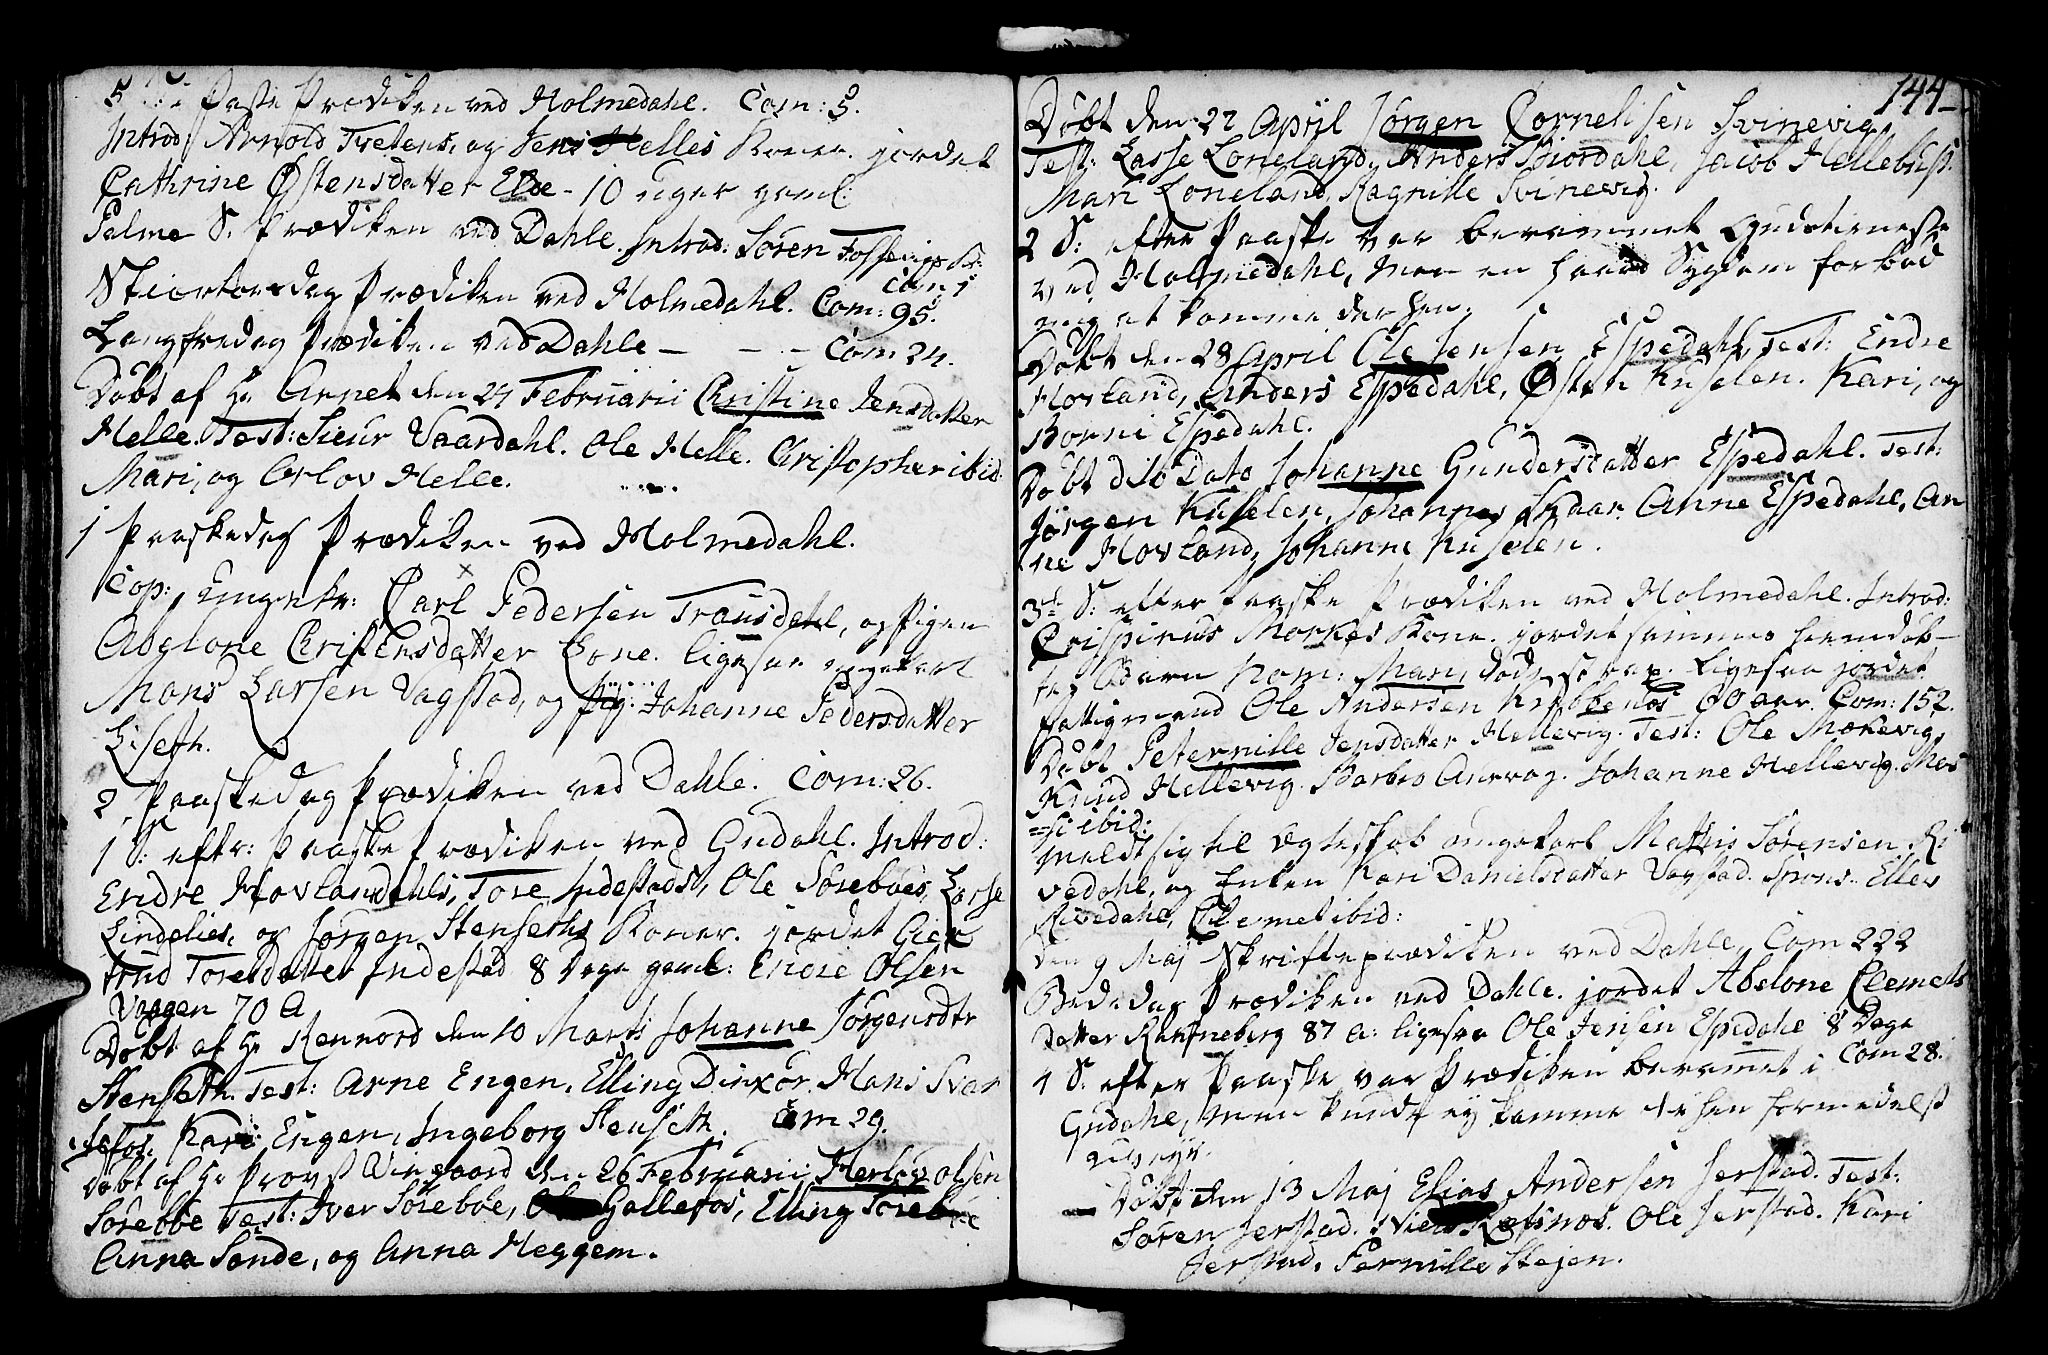 5 S: i Faste Prædiken ved Holmedahl. Com: 5.
Introd: Arnold Tvetens, og Jens Helles Koner. jordet
Cathrine Østensdatter Elde - 10 uger gaml:
Palme S. Prædiken ved Dahle. Introd: Søren
Com: 1
Skiertorsdag Prædiken ved Holmedahl. Com: 95.
Langfredag Prædiken ved Dahle - - - Com: 24.
Døbt af Hr Arnet den 27 Februarii Christine Jensdatter
Helle. Test: Sieur Vaardahl. Ole Helle. Christopher ibid:
Mari, og Orlov Helle.
1 Paaskedag Prædiken ved Holmedahl.
Cop: Ungekr: Carl Pedersen Trausdahl, og Pigen
Abelone Christensdatter Lone. ligesaa ungekarl
Mons Larsen Vagstad, og Pig: Johanne Pedersdatter
Liseth.
2 Paaskedag Prædiken ved Dahle. Com: 26.
1 S: eftr: Paaske Prædiken ved Gudahl. Introd:
Endre Hovlandahls, Tore Indestads, Ole Sørebøes, Lasse
Lindelies, og Jørgen Stenseths Koner. jordet Gier
trud Toresdatter Indestad 8 Dage gaml: Endre Olsen
Vaagen 70 A
Døbt af Hr Rennord den 10 Marti Johanne Jørgensdtr
Stenseth. Test: Arne Engen, Elling Dinxør. Hans Svar
tefos. Kari Engen, Ingeborg Stenseth. Com 29.
Døbt af Hr Provst Wingaard den 26 Februarii Herlov Olsen
Sørebøe Test: Iver Sørebøe, Ole Gallefos, Elling Sørebøe
Anna Sande, og Anna Heggem.
144
Døbt den 22 April Jørgen Cornelisen Svinevig
Test: Lasse Loneland, Anders Biordahl, Jacob Hellebust.
Mari Loneland, Ragnille Svinevig.
2 S: efter Paaske var berammet Gudstieneste
ved Holmedahl, men en haard Sygdom forbød
mig at komme derhen.
Døbt den 28 April Ole Jensen Espedahl, Test: Endre
Hovland, Anders Espedahl, Østen Kuselen. Kari, og
Borni Espedahl.
Døbt dito Dato Johanne Gundersdatter Espedahl. Test:
Jørgen Kuselen, Johannes Skaar. Anne Espedahl, An
ne Hovland, Johanne Kuselen.
3de S: efter Paaske Prædiken ved Holmedahl. Introd:
Crispinus Morkes Kone. jordet sammes hiemdøb-
te Barn Nom: Mari, død strax. Ligesaa jordet
Fattigmand Ole Andersen 60 aar. Com: 152.
Døbt Peternille Jensdatter Hellevig. Test: Ole Mækevig,
Knud Hellevig. Barbro Aarvog. Johanne Hellevig. Mar
=si ibid:
Meldt sig til Egteskab ungekarl Mathis Sørensen Ri
vedahl, og Enken Kari Danielsdatter Vagstad. Spons: Eller
Rivedahl, Clemet ibid:
Den 9 Maj Skrifteprædiken ved Dahle, Com 222
Bededag Prædiken ved Dahle. jordet Abelone Clemets
Datter 87 A: ligesaa Ole Jensen Espedahl 8 Dage
Com 28.
4 S. efter Paaske var Prædiken berammet i
Gudahl, men kunde ej komme derhen formedelst

Døbt den 13 Maj Elias Andersen Jerstad. Test:
Søren Jerstad. Niels Ole Jerstad. Kari
Jerstad. Pernille Stejen.